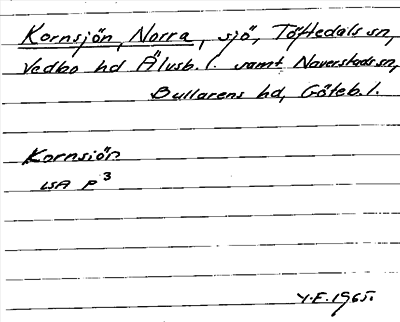 Kornsjön, Norra, sjö, Töftedals sn,
Vedbo hd Älvsb. l. samt Naverstads sn,
Bullarens hd, Göteb. l.
Kornsjön
LSA P 3
Y.F. 1965.